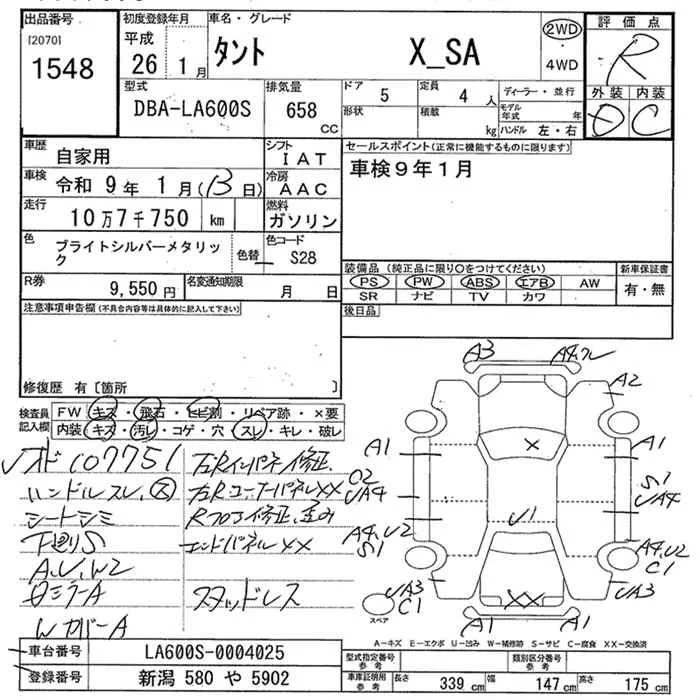 出品番号
[2070]
1548
初度登録年月
平成
26 1 月
車名・グレード
タント X_SA
2WD
・
4WD
評価点
R
外装 内装
D C
型式
DBA-LA600S
排気量
658 CC
ドア
5
定員
4 人
形状
積載
kg
ディーラー・並行
モデル年式 年
ハンドル 左・右
車歴
自家用
シフト
IAT
車検
令和 9年 1月(13日)
冷房
AAC
走行
10万7千750 km
燃料
ガソリン
色
ブライトシルバーメタリック
色替
色コード
S28
R券
9,550円
名変通知期限
月 日
セールスポイント(正常に機能するものに限ります)
車検9年1月
装備品(純正品に限り○をつけてください)
PS PW ABS エアB AW
SR ナビ TV カワ
新車保証書
有・無
後日品
注意事項申告欄(不具合内容等は具体的に記入して下さい)
修復歴 有〔箇所 〕
検査員記入欄
FW キズ・飛石・ヒビ割・リペア跡・×要
内装 キズ・汚レ・コゲ・穴・スレ・キレ・破レ
107751
左Rインパネ修正
ハンドルスレ
左RコーナーパネルXX
シートシミ
Rフロア修正
エンドパネルXX
下廻りS
A,U,W2
ミラーA
スタッドレス
WカバーA
A3
A2
A1
A1
S1
UA4
O2
UA4
A4,U2
S1
A4,U2
C1
UA3
C1
UA3
A1
A1
X
U1
X
スペア
A-キズ E-エクボ U-凹み W-補修跡 S-サビ C-腐食 XX-交換済
車台番号
LA600S-0004025
登録番号
新潟 580 や 5902
型式指定番号
参考
類別区分番号
参考
車庫証明用
参考
長さ 339 cm
幅 147 cm
高さ 175 cm